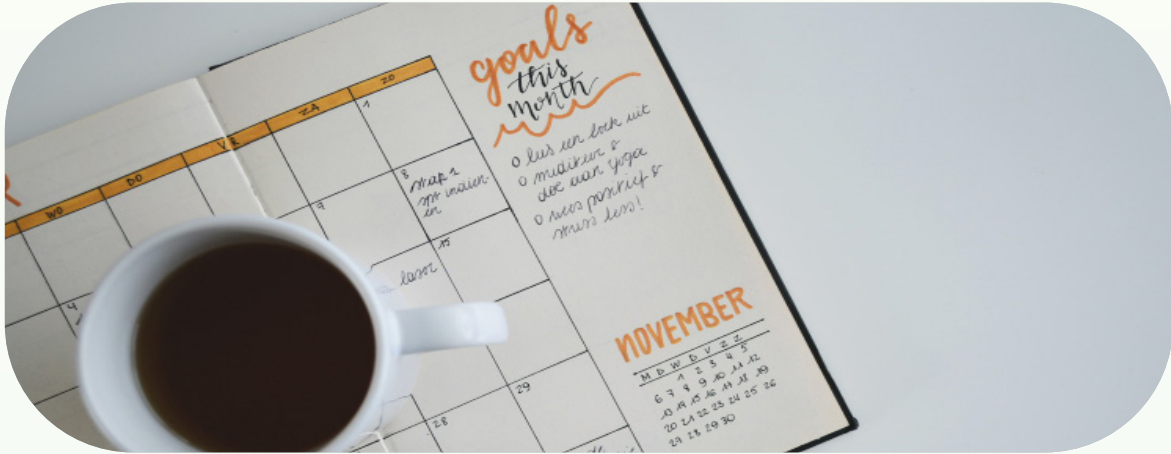 WO DO VR ZA ZO
1
8
15
4
29
28
goals
this
month
o lees een boek uit
o mediteer &
doe aan yoga
o wees positief &
stress less!
NOVEMBER
M D W D V Z Z
1 2 3 4 5
6 7 8 9 10 11 12
13 14 15 16 17 18 19
20 21 22 23 24 25 26
27 28 29 30